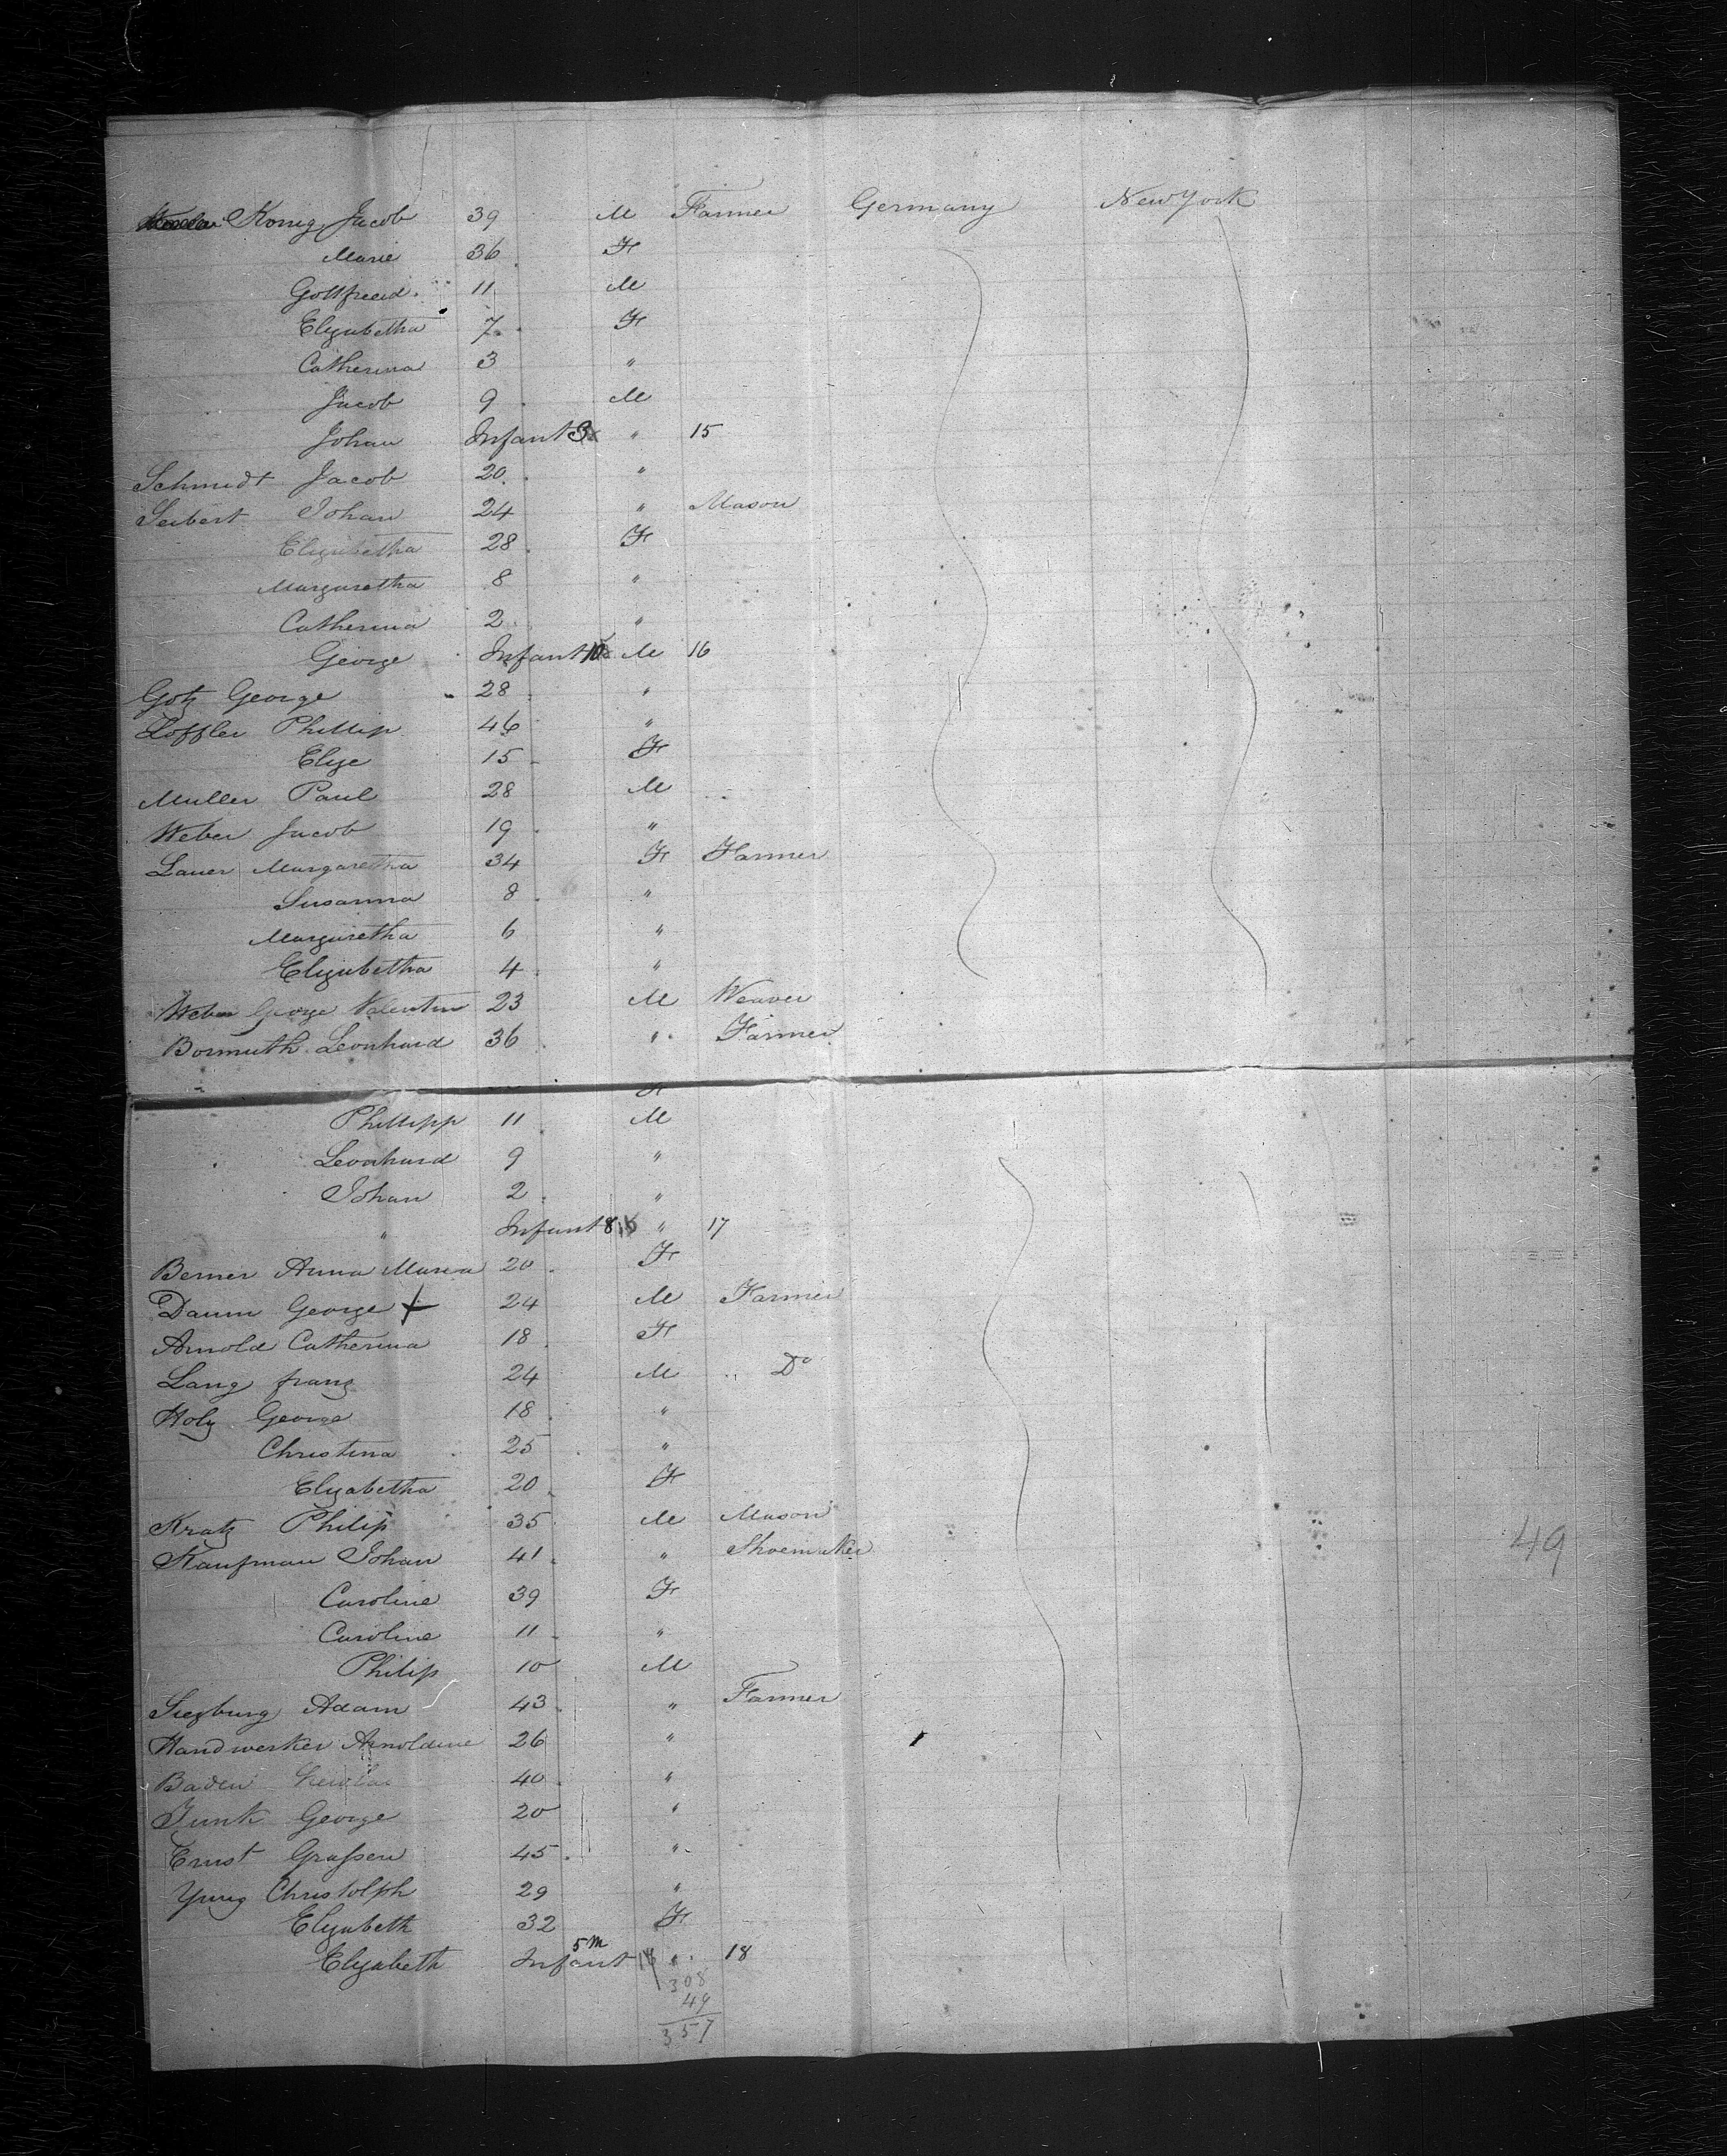 Konig Jacob 39 M Farmer Germany New York
Marie 36 F
Gottfried 11 M
Elizabetha 7 F
Catherina 3 "
Jacob 9 M
Johan Infant 3 " 15
Schmidt Jacob 20 "
Seibert Johan 24 " Mason
Elizabetha 28 F
Margaretha 8 "
Catherina 2 "
George Infant 10 M 16
Gotz George 28 "
Loffler Phillip 46 "
Elize 15 F
Muller Paul 28 M
Weber Jacob 19 "
Lauer Margaretha 34 F Farmer
Susanna 8 "
Margaretha 6 "
Elizabetha 4 "
Weber George Valentin 23 M Weaver
Bormuth Leonhard 36 " Farmer
F
Phillipp 11 M
Leonhard 9 "
Johan 2 "
" Infant 8 " 17
Berner Anna Maria 20 F
Daum George 24 M Farmer
Arnold Catherina 18 F
Lang franz 24 M Do
Holz George 18 "
Christina 25 "
Elizabetha 20 F
Kratz Philip 35 M Mason
Kaufman Johan 41 " Shoemaker
Caroline 39 F
Caroline 11 "
Philip 10 M
Siegburg Adam 43 " Farmer
Handwerker Arnoldine 26 "
Baden 40 "
Junk George 20 "
Ernst Grassen 45 "
Yung Christolph 29 "
Elizabeth 32 F
5 m
Elizabeth Infant " 18
308
49
357
49